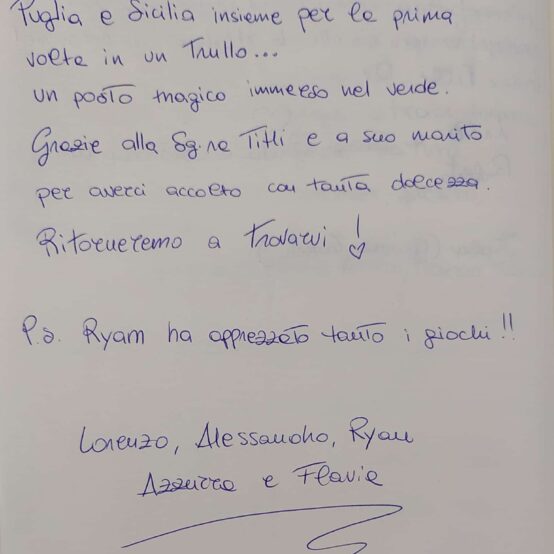 Puglia e Sicilia insieme per la prima
volta in un Trullo...
un posto magico immerso nel verde.
Grazie alla Sg.ra Titti e a suo marito
per averci accolto con tanta dolcezza.
Ritorneremo a trovarvi!
P.s. Ryam ha apprezzato tanto i giochi!!
Lorenzo, Alessandro, Ryan
Azzurra e Flavia